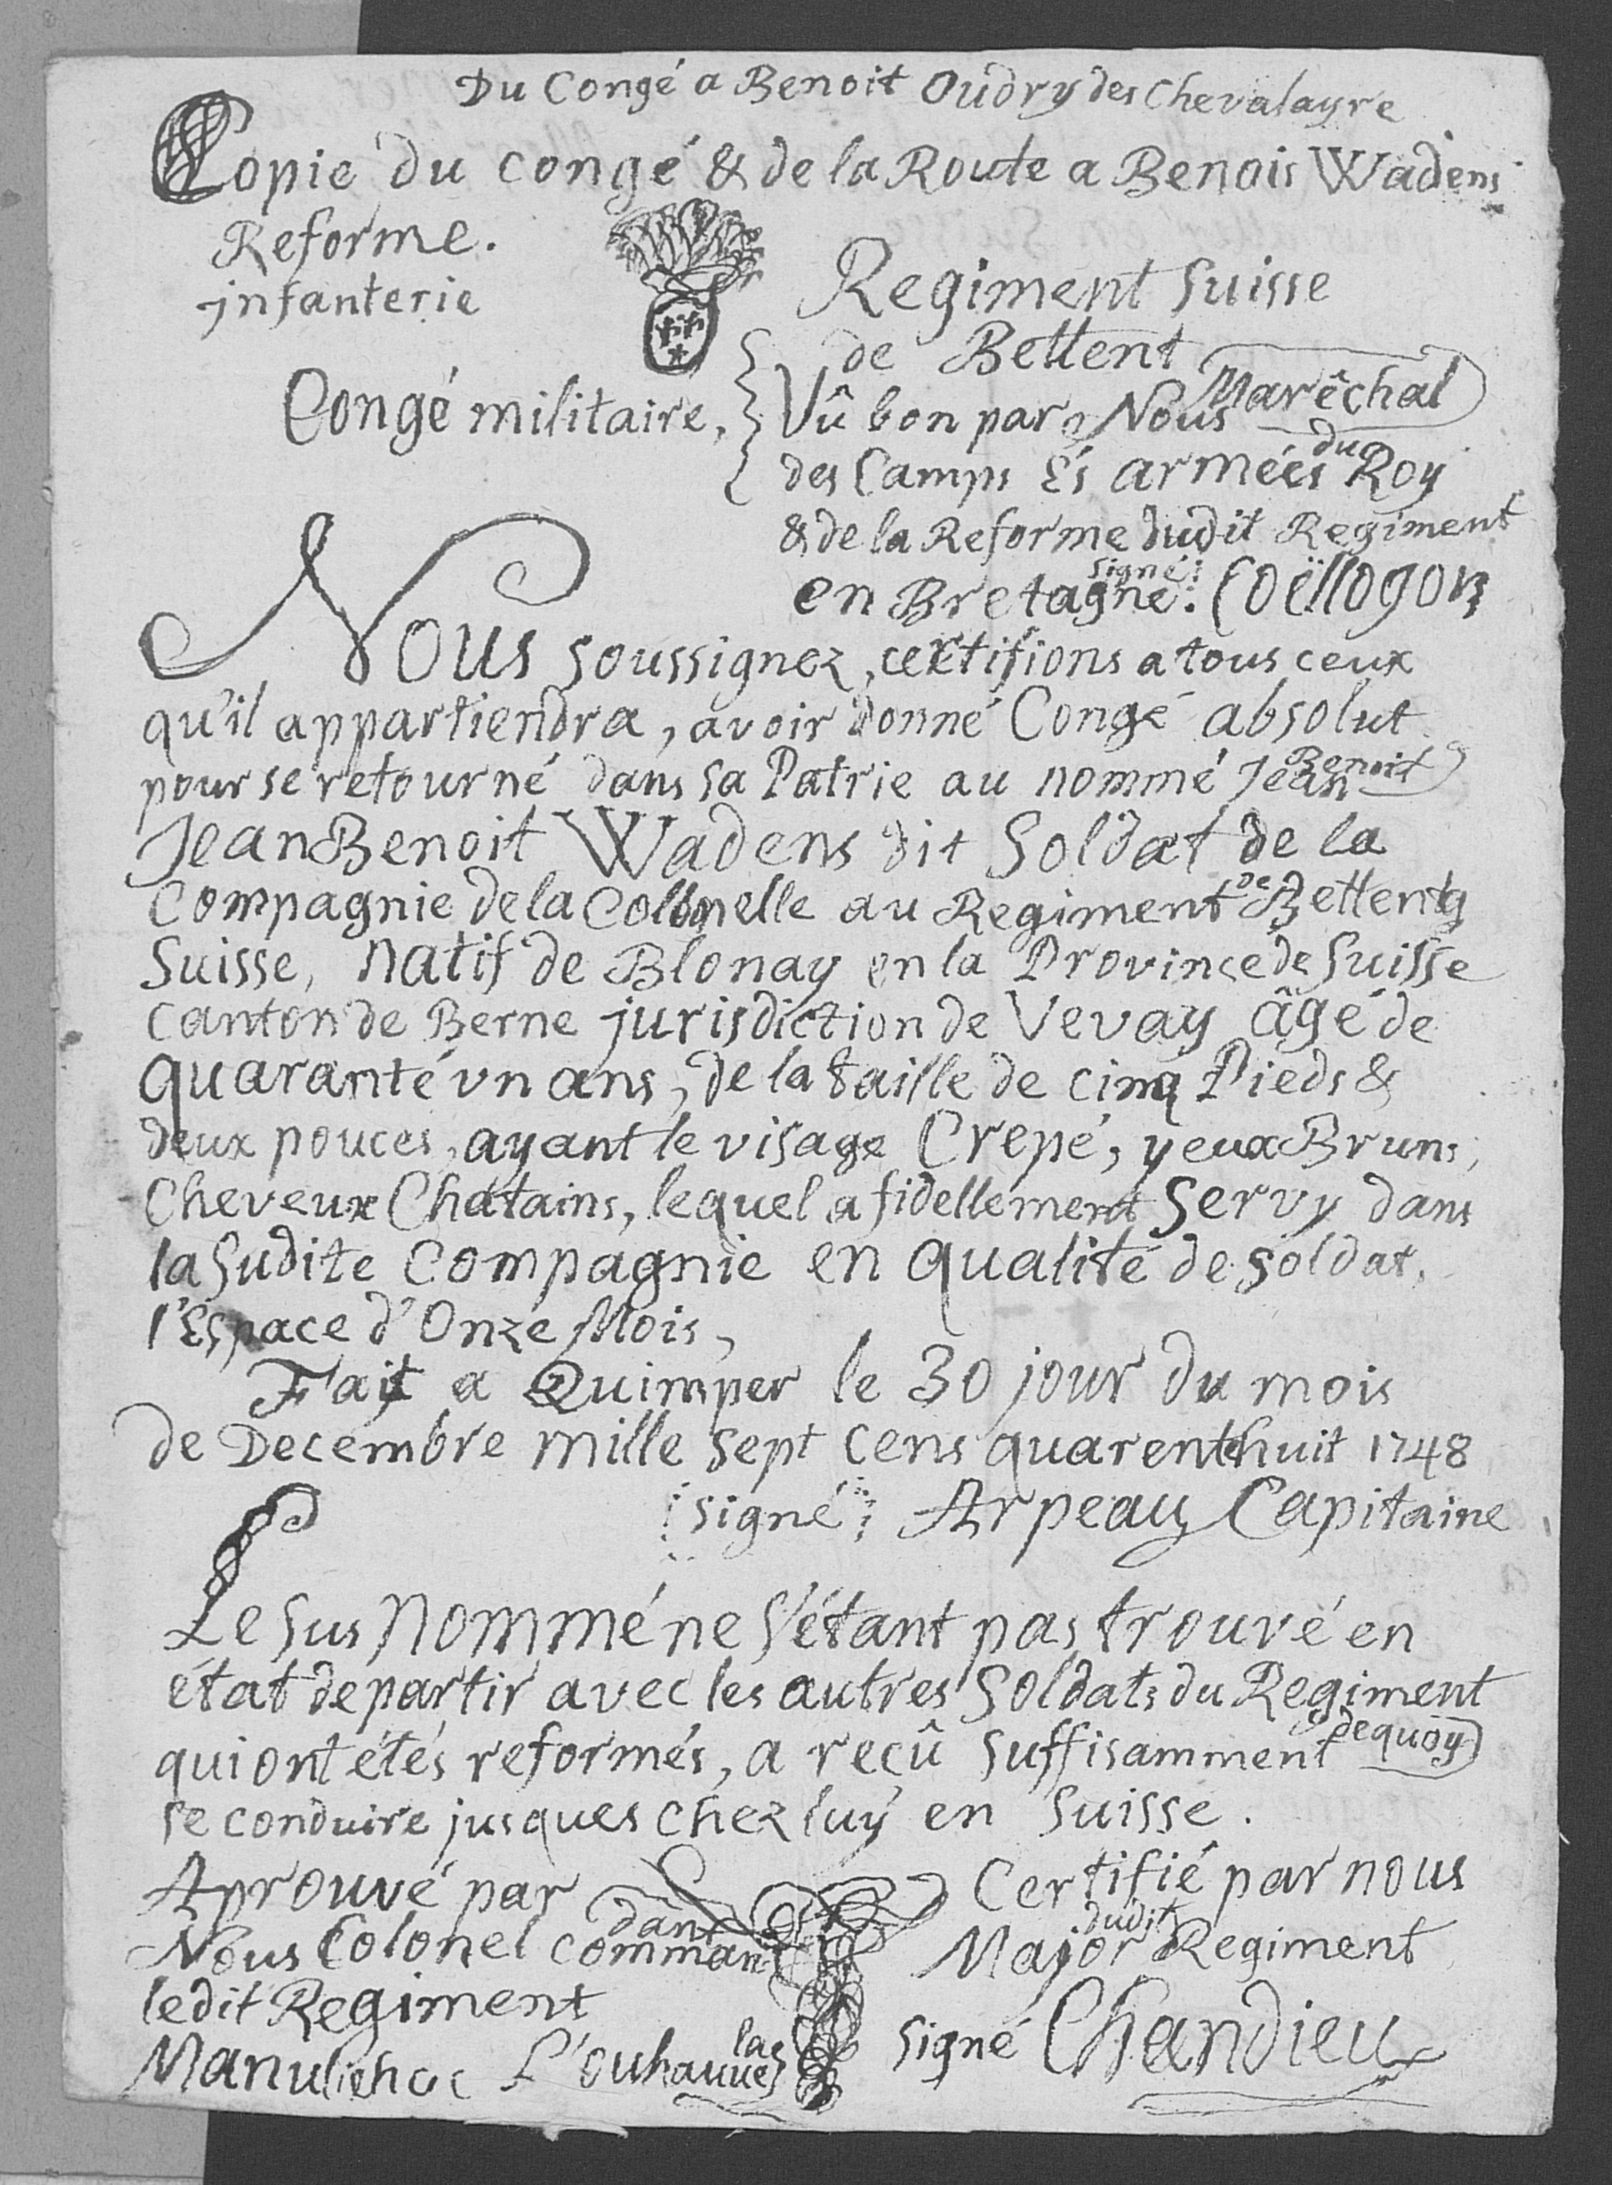 Du Congé a Benoit Oudry des Chevalayre
Copie du congé & de la Route a Benois Wadens
Reforme.
jnfanterie
Regiment Suisse
de Bettent
Congé militaire,
Vû bon par Nous Marêchal
des Camps És armées du Roy
& de la Reforme dudit Regiment
en Bretagne: signé: Coëllogon
Nous soussignez, certifions a tous ceux
qu'il appartiendra, avoir donné Congé absolut
pour se retourné dans sa Patrie au nommé Jean Benoit
Jean Benoit Wadens dit Soldat de la
Compagnie de la Collonelle au Regiment de Bettents
Suisse, natif de Blonay en la Province de Suisse
canton de Berne jurisdiction de Vevay âgé de
quaranté vn ans, de la taille de cinq Pieds &
deux pouces, ayant le visage Crepé, yeux Bruns,
Cheveux Chatains, lequel a fidellement servy dans
la Sudite Compagnie en qualité de soldat,
l'Espace d'Onze Mois,
Fait a Quimper le 30 jour du mois
de Decembre mille sept cens quarentehuit 1748
signé: Arpeau Capitaine
Le Sus Nommé ne s'étant pas trouvé en
état de partir avec les autres Soldats du Regiment
qui ont étés reformés, a reçû suffisamment dequoy
se conduire jusques chez luy en Suisse.
Aprouvé par
Nous Colonel commandant
ledit Regiment
Certifié par nous
Major dudit Regiment
signé Chandieu